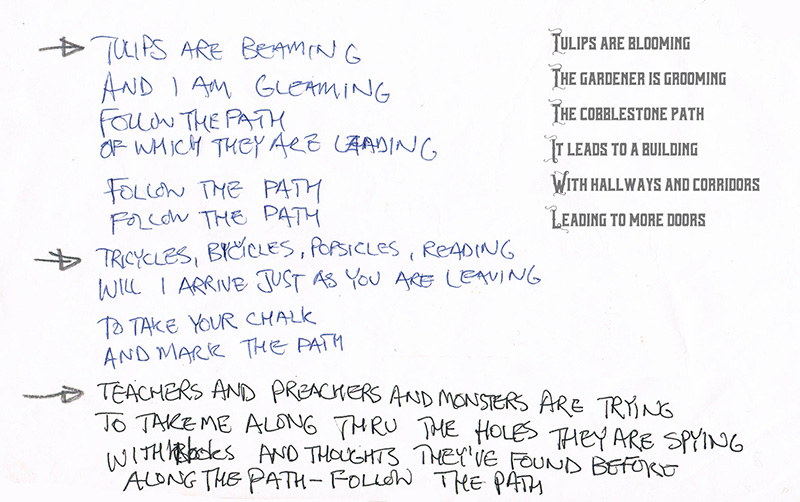 TULIPS ARE BEAMING
AND I AM GLEAMING
FOLLOW THE PATH
OF WHICH THEY ARE LEADING
FOLLOW THE PATH
FOLLOW THE PATH
TRICYCLES, BICYCLES, POPSICLES, READING
WILL I ARRIVE JUST AS YOU ARE LEAVING
TO TAKE YOUR CHALK
AND MARK THE PATH
TEACHERS AND PREACHERS AND MONSTERS ARE TRYING
TO TAKE ME ALONG THRU THE HOLES THEY ARE SPYING
WITH AND THOUGHTS THEY'VE FOUND BEFORE
ALONG THE PATH - FOLLOW THE PATH
TULIPS ARE BLOOMING
THE GARDENER IS GROOMING
THE COBBLESTONE PATH
IT LEADS TO A BUILDING
WITH HALLWAYS AND CORRIDORS
LEADING TO MORE DOORS